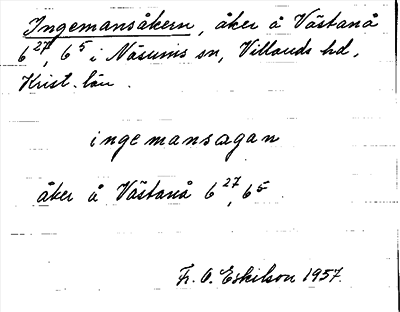 Ingemansåkern, åker å Västanå
6²⁷, 6⁵ i Näsums sn, Villands hd,
Krist. län.
ingemansagan
åker å Västanå 6²⁷, 6⁵
Fr. O. Eskilson 1957.